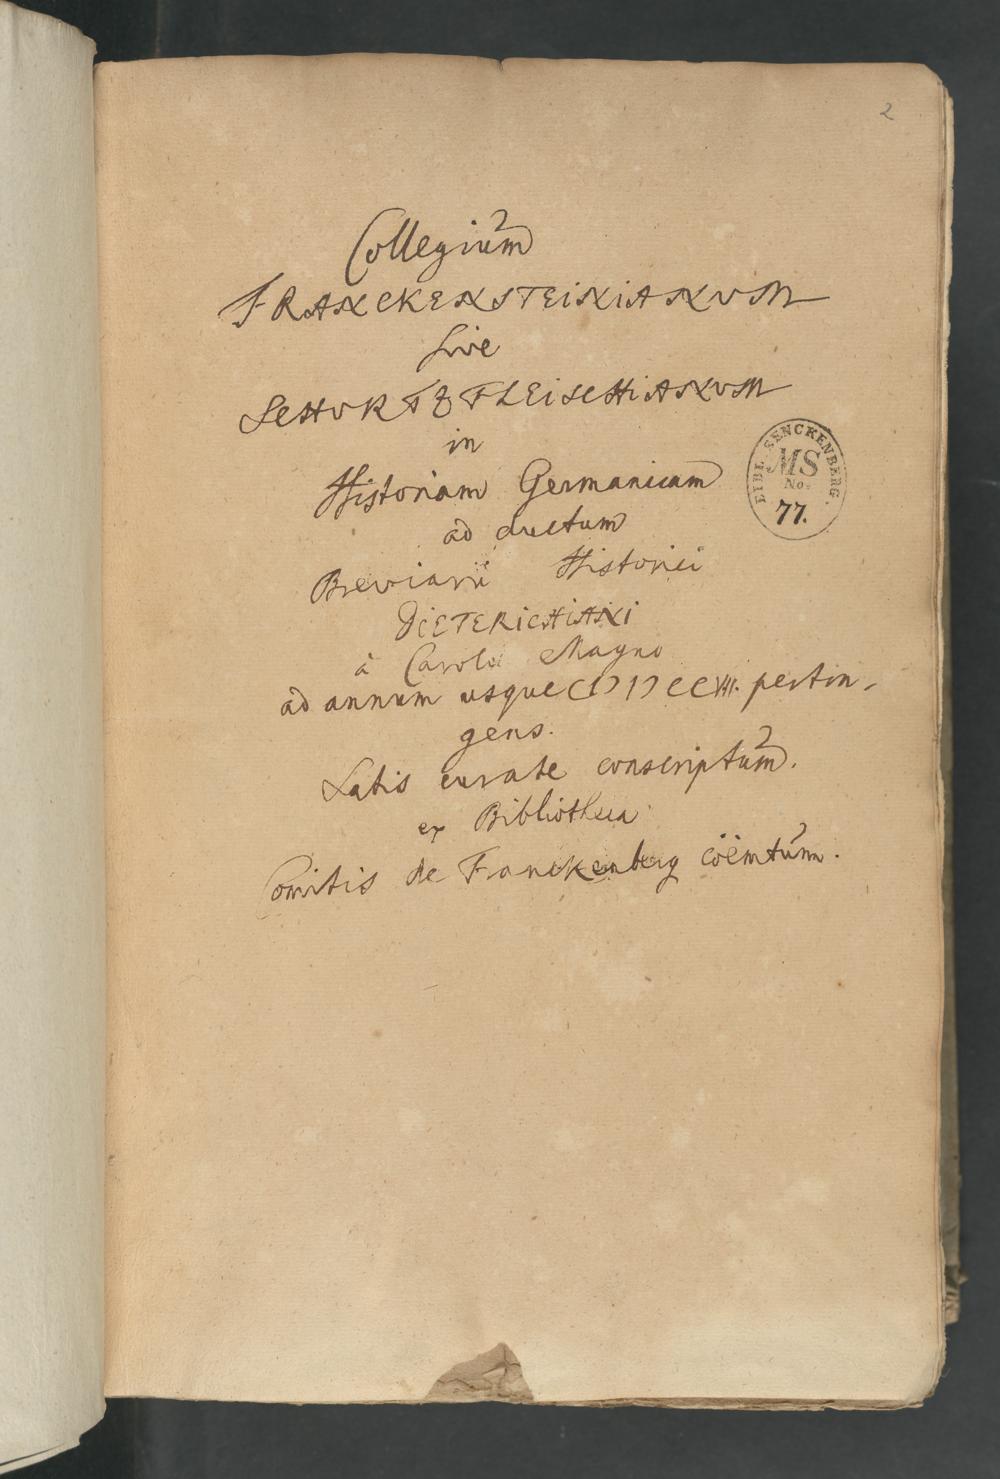 2
Collegium
FRANCKENSTEINIANUM
sive
SCHURTZFLEISCHIANUM
in
Historiam Germanicam
ad ductum
Breviarii Historici
DIETERICHIANI
à Carolo Magno
ad annum usque CIƆIƆCCVIII. pertin-
gens.
Satis curate conscriptum.
ex Bibliotheca
Comitis de Franckenberg coëmtum.
BIBL. SENCKENBERG.
MS
No.
77.